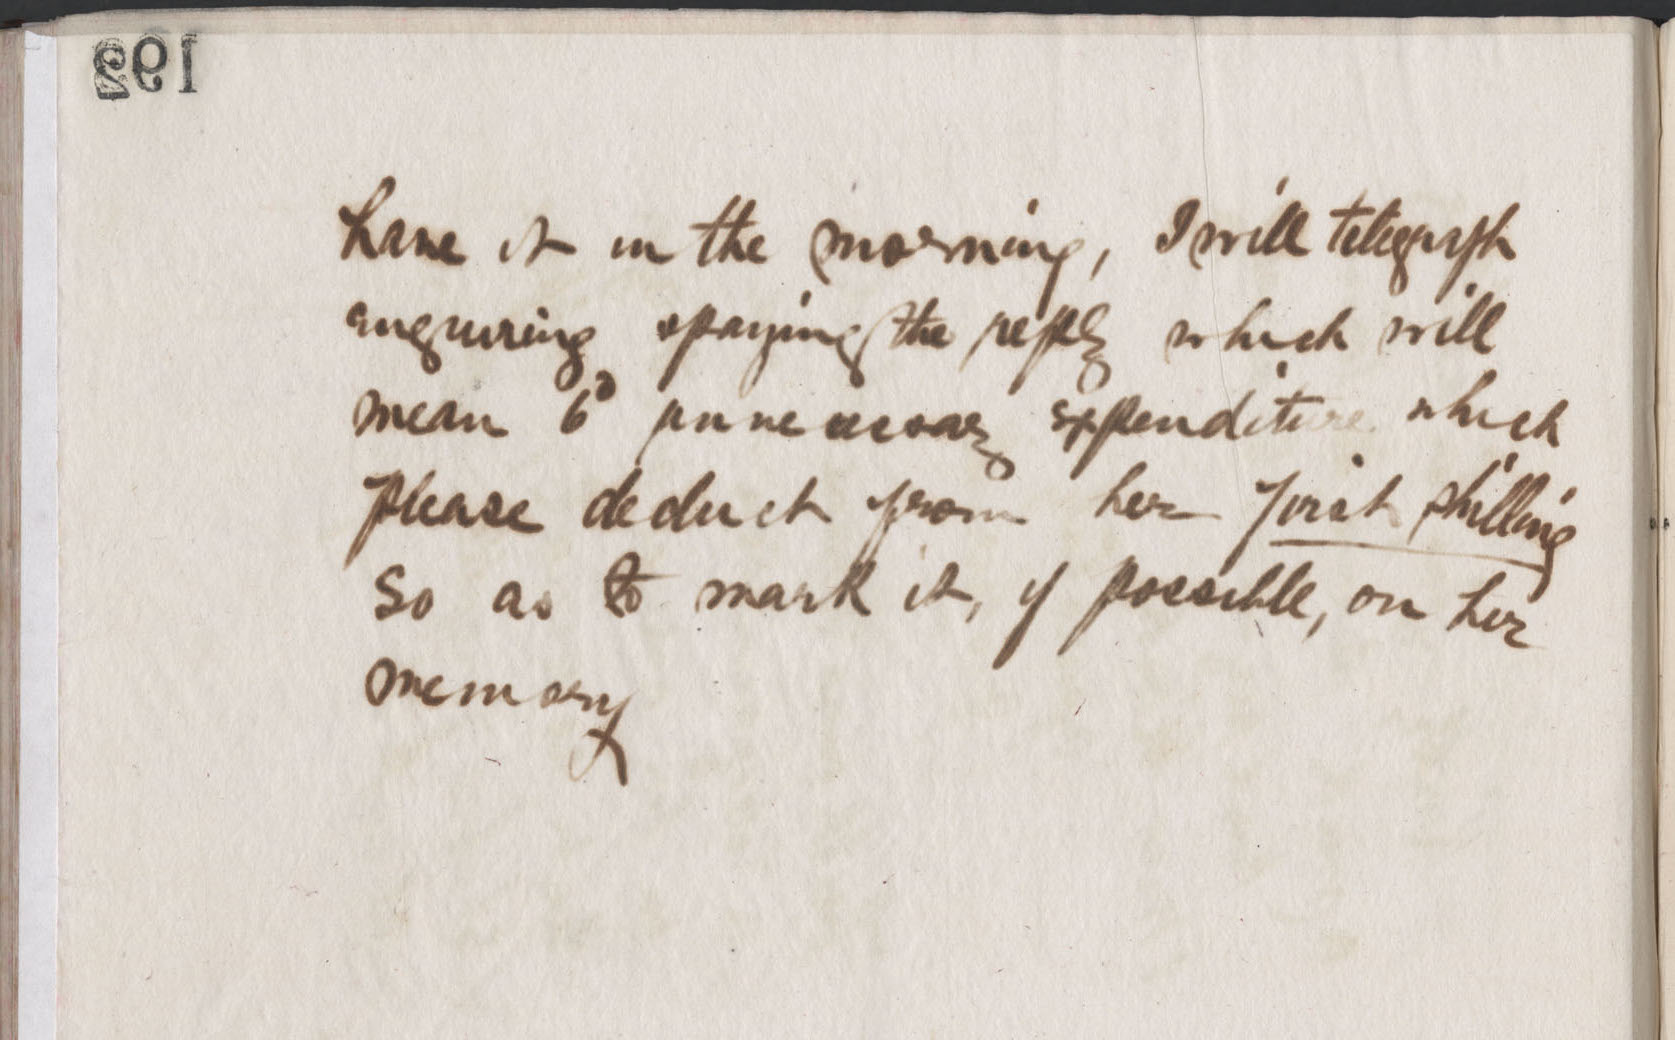 192
have it in the morning, I will telegraph
enquiring &paying the reply which will
mean 6d unnecessary expenditure which
please deduct from her first shilling
so as to mark it, if possible, on her
memory